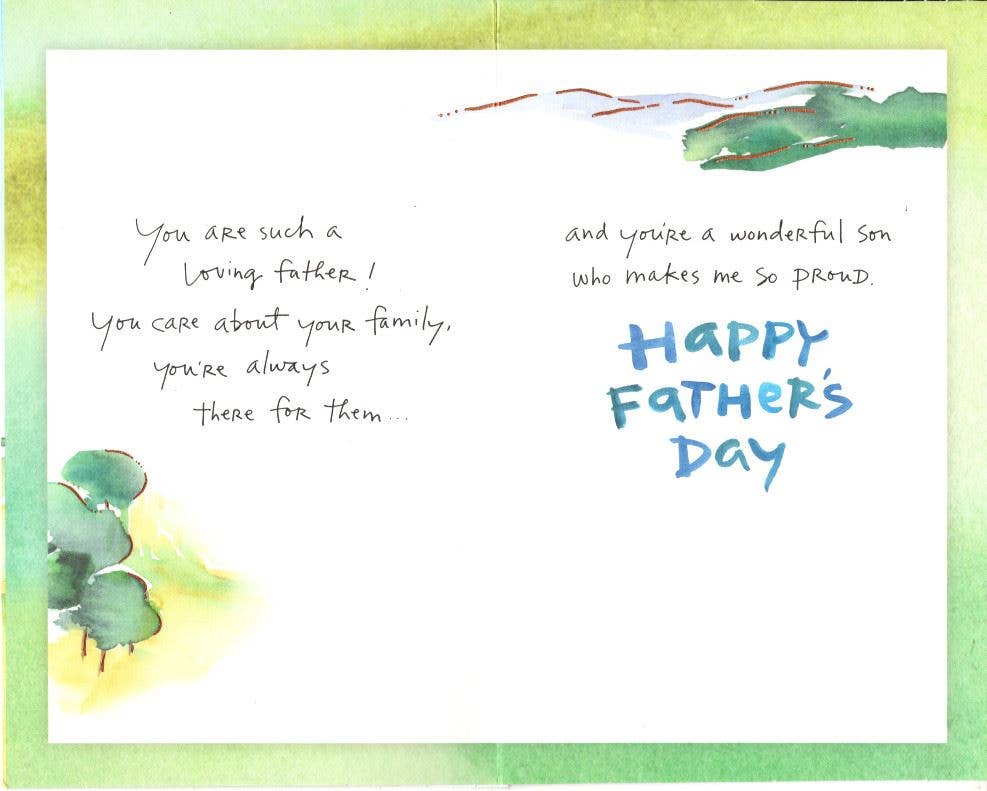 You are such a
loving father!
You care about your family,
you're always
there for them...
and you're a wonderful son
who makes me so proud.
Happy
Father's
Day